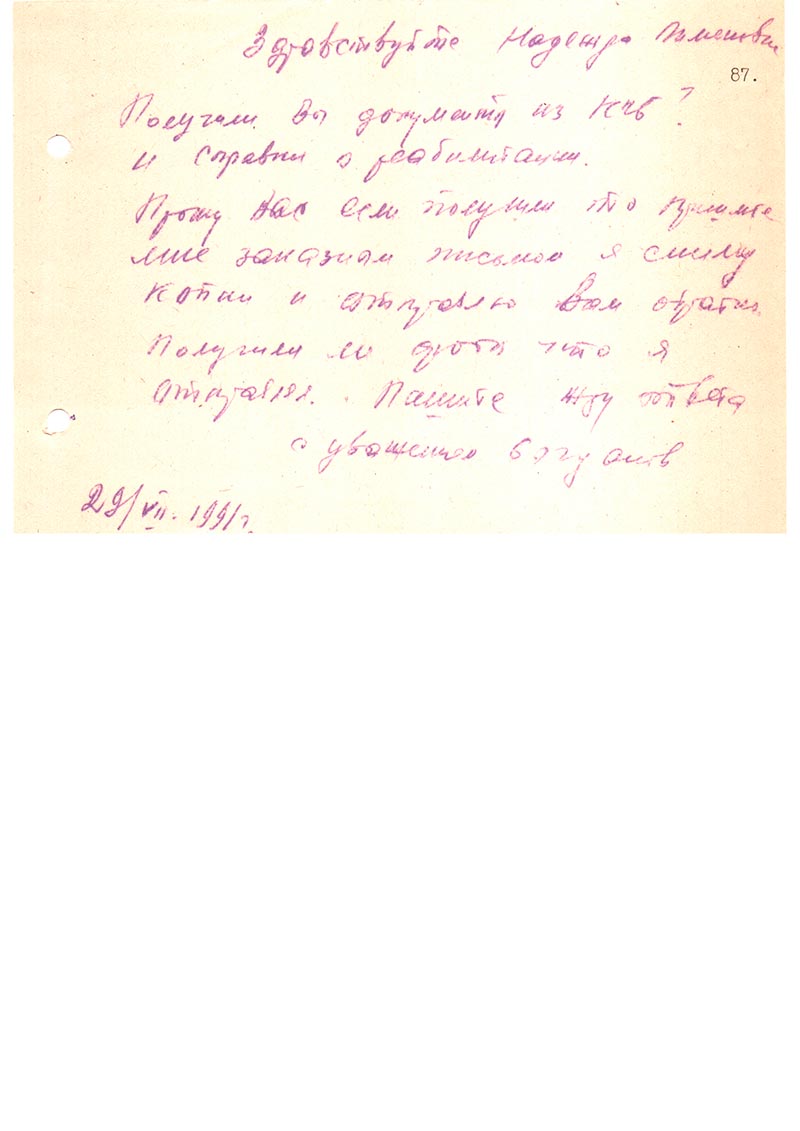 Здравствуйте Надежда
87.
Получили Вы документы из КГБ?
и справки о реабилитации.
Прошу Вас если получили то пришлите
мне заказным письмом я сниму
копии и отправлю Вам обратно.
Получили ли фото что я
отправлял. Пишите жду ответа
с уважением
29/VII. 1991 г.